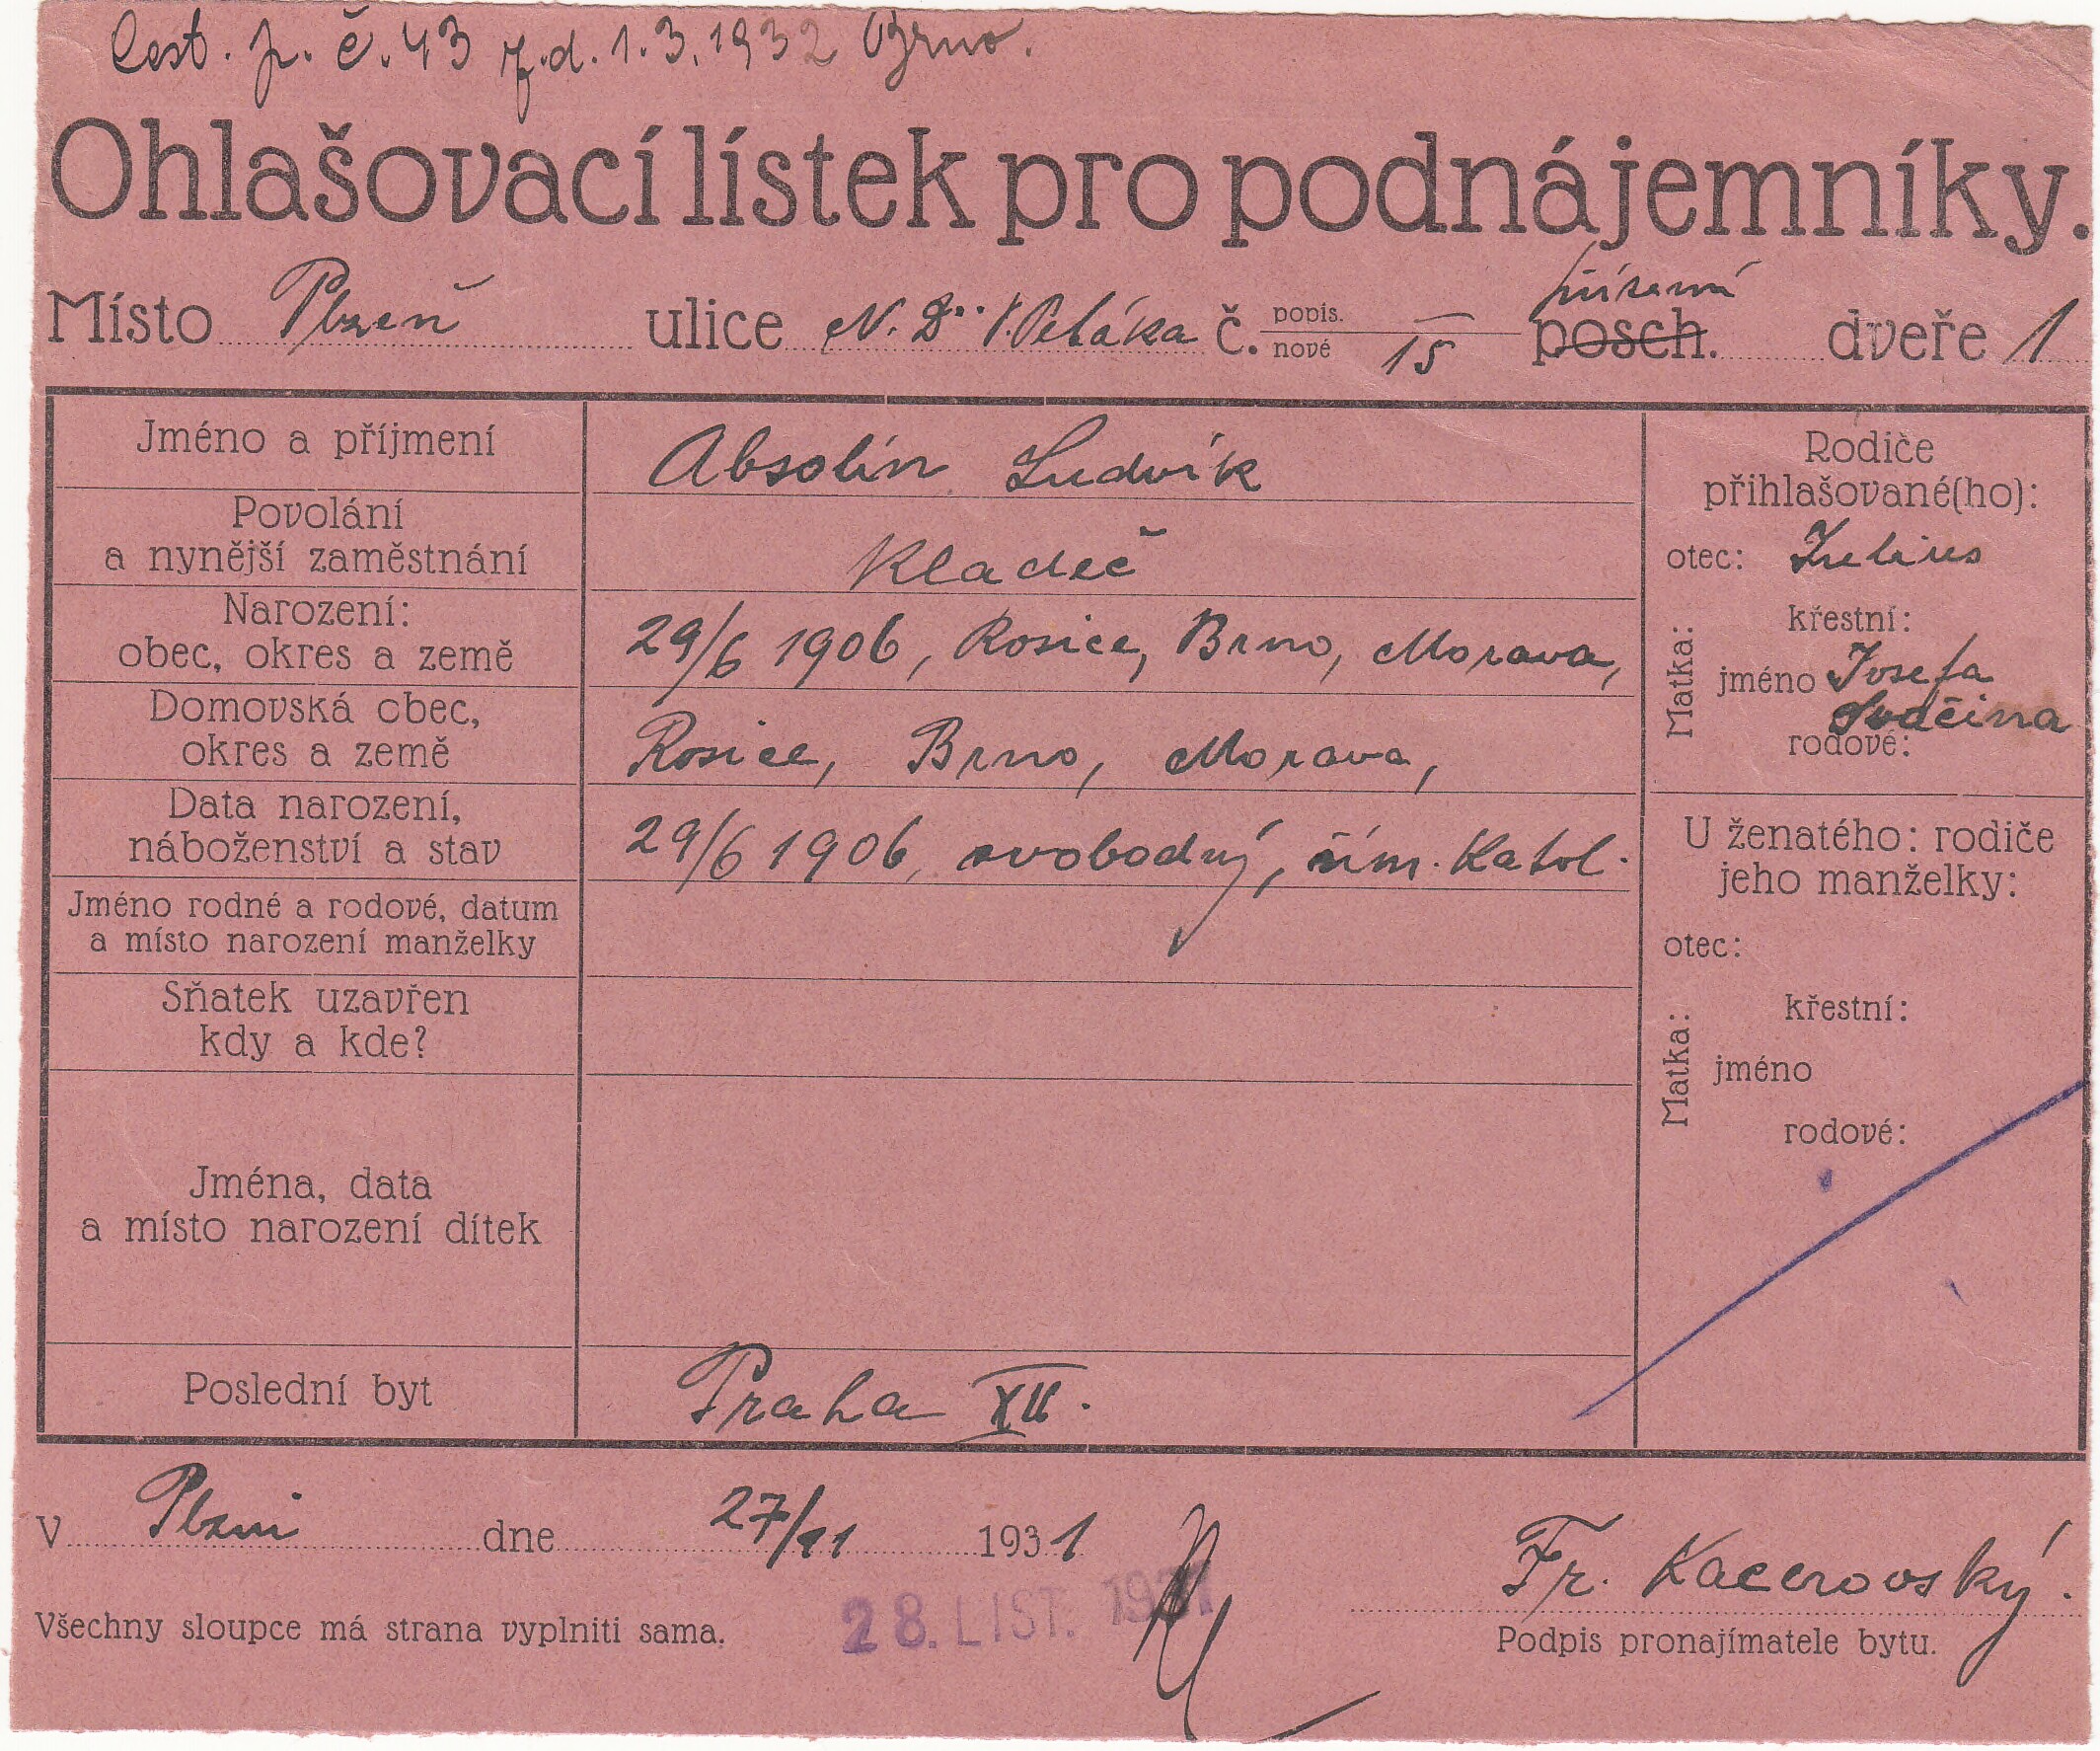 Cest. p. č. 43 z. d. 1. 3. 1932 Brno.
Ohlašovací lístek pro podnájemníky.
Místo Plzeň ulice N. Dr. V. Peláka č. popis. nové — 15 posch. přízemí dveře 1
Jméno a příjmení
Absolin Ludvík
Povolání
a nynější zaměstnání
Kladeč
Narození:
obec, okres a země
29/6 1906, Rosice, Brno, Morava,
Domovská obec,
okres a země
Rosice, Brno, Morava,
Data narození,
náboženství a stav
29/6 1906, svobodný, řím. Katol.
Jméno rodné a rodové, datum
a místo narození manželky
Sňatek uzavřen
kdy a kde?
Jména, data
a místo narození dítek
Poslední byt
Praha XII.
Rodiče
přihlašované(ho):
otec: Julius
Matka:
křestní:
jméno Josefa
rodové:
U ženatého: rodiče
jeho manželky:
otec:
Matka:
křestní:
jméno
rodové:
V Plzni dne 27/11 1931
28. LIST. 1931
Fr. Kacerovský.
Všechny sloupce má strana vyplniti sama.
Podpis pronajímatele bytu.